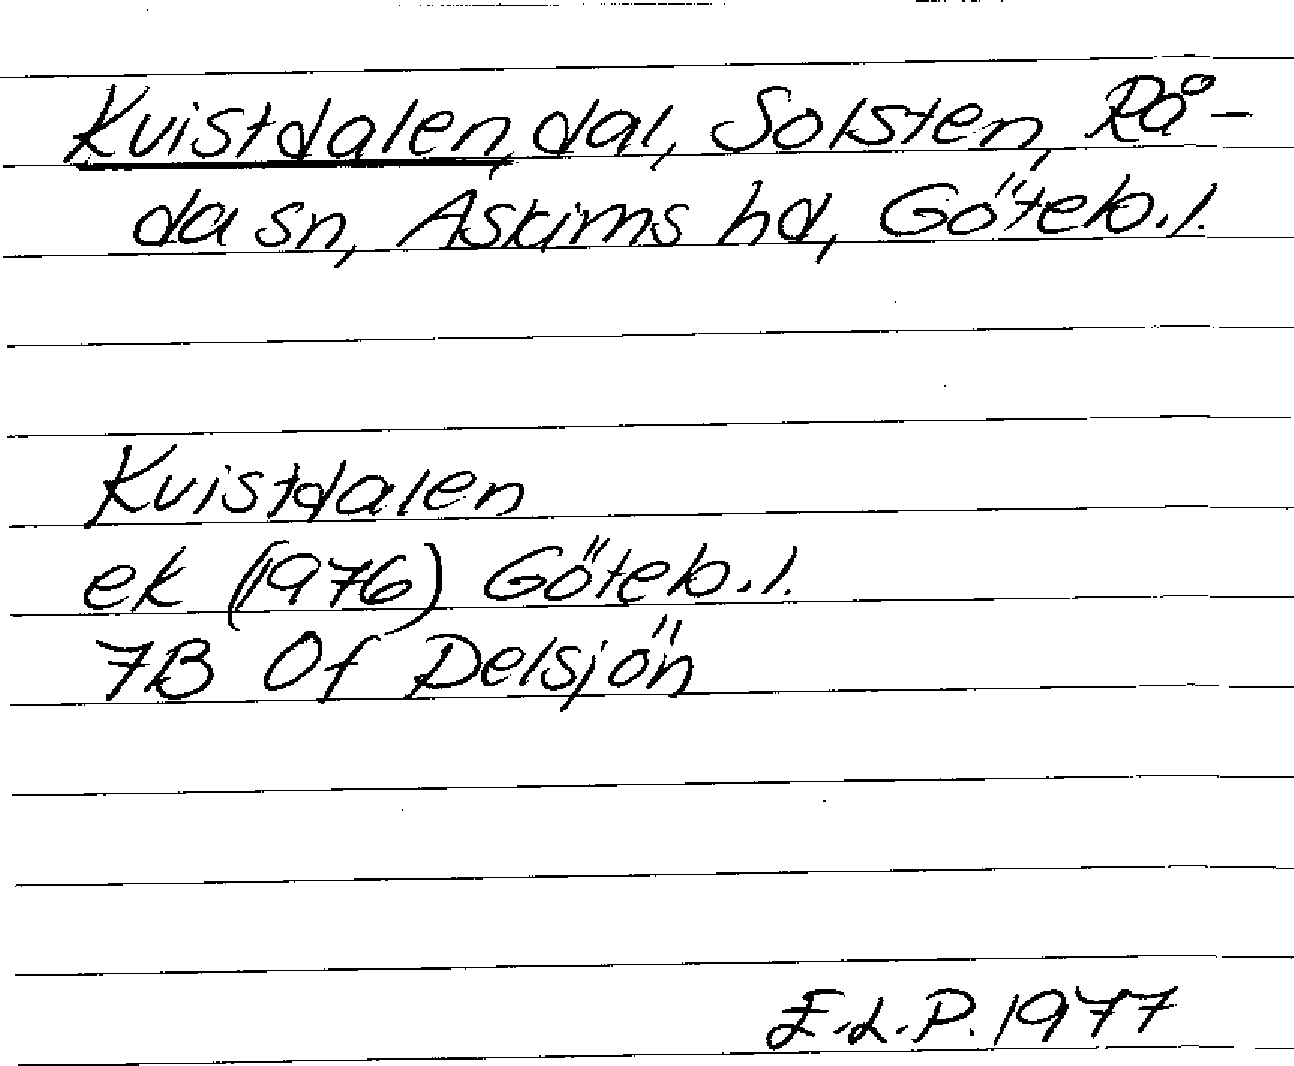 Kvistdalen, dal, Solsten, Rå-
da sn, Askims hd, Göteb.l.
Kvistdalen
ek (1976) Göteb.l.
7B 0f Delsjön
E.L.P. 1977